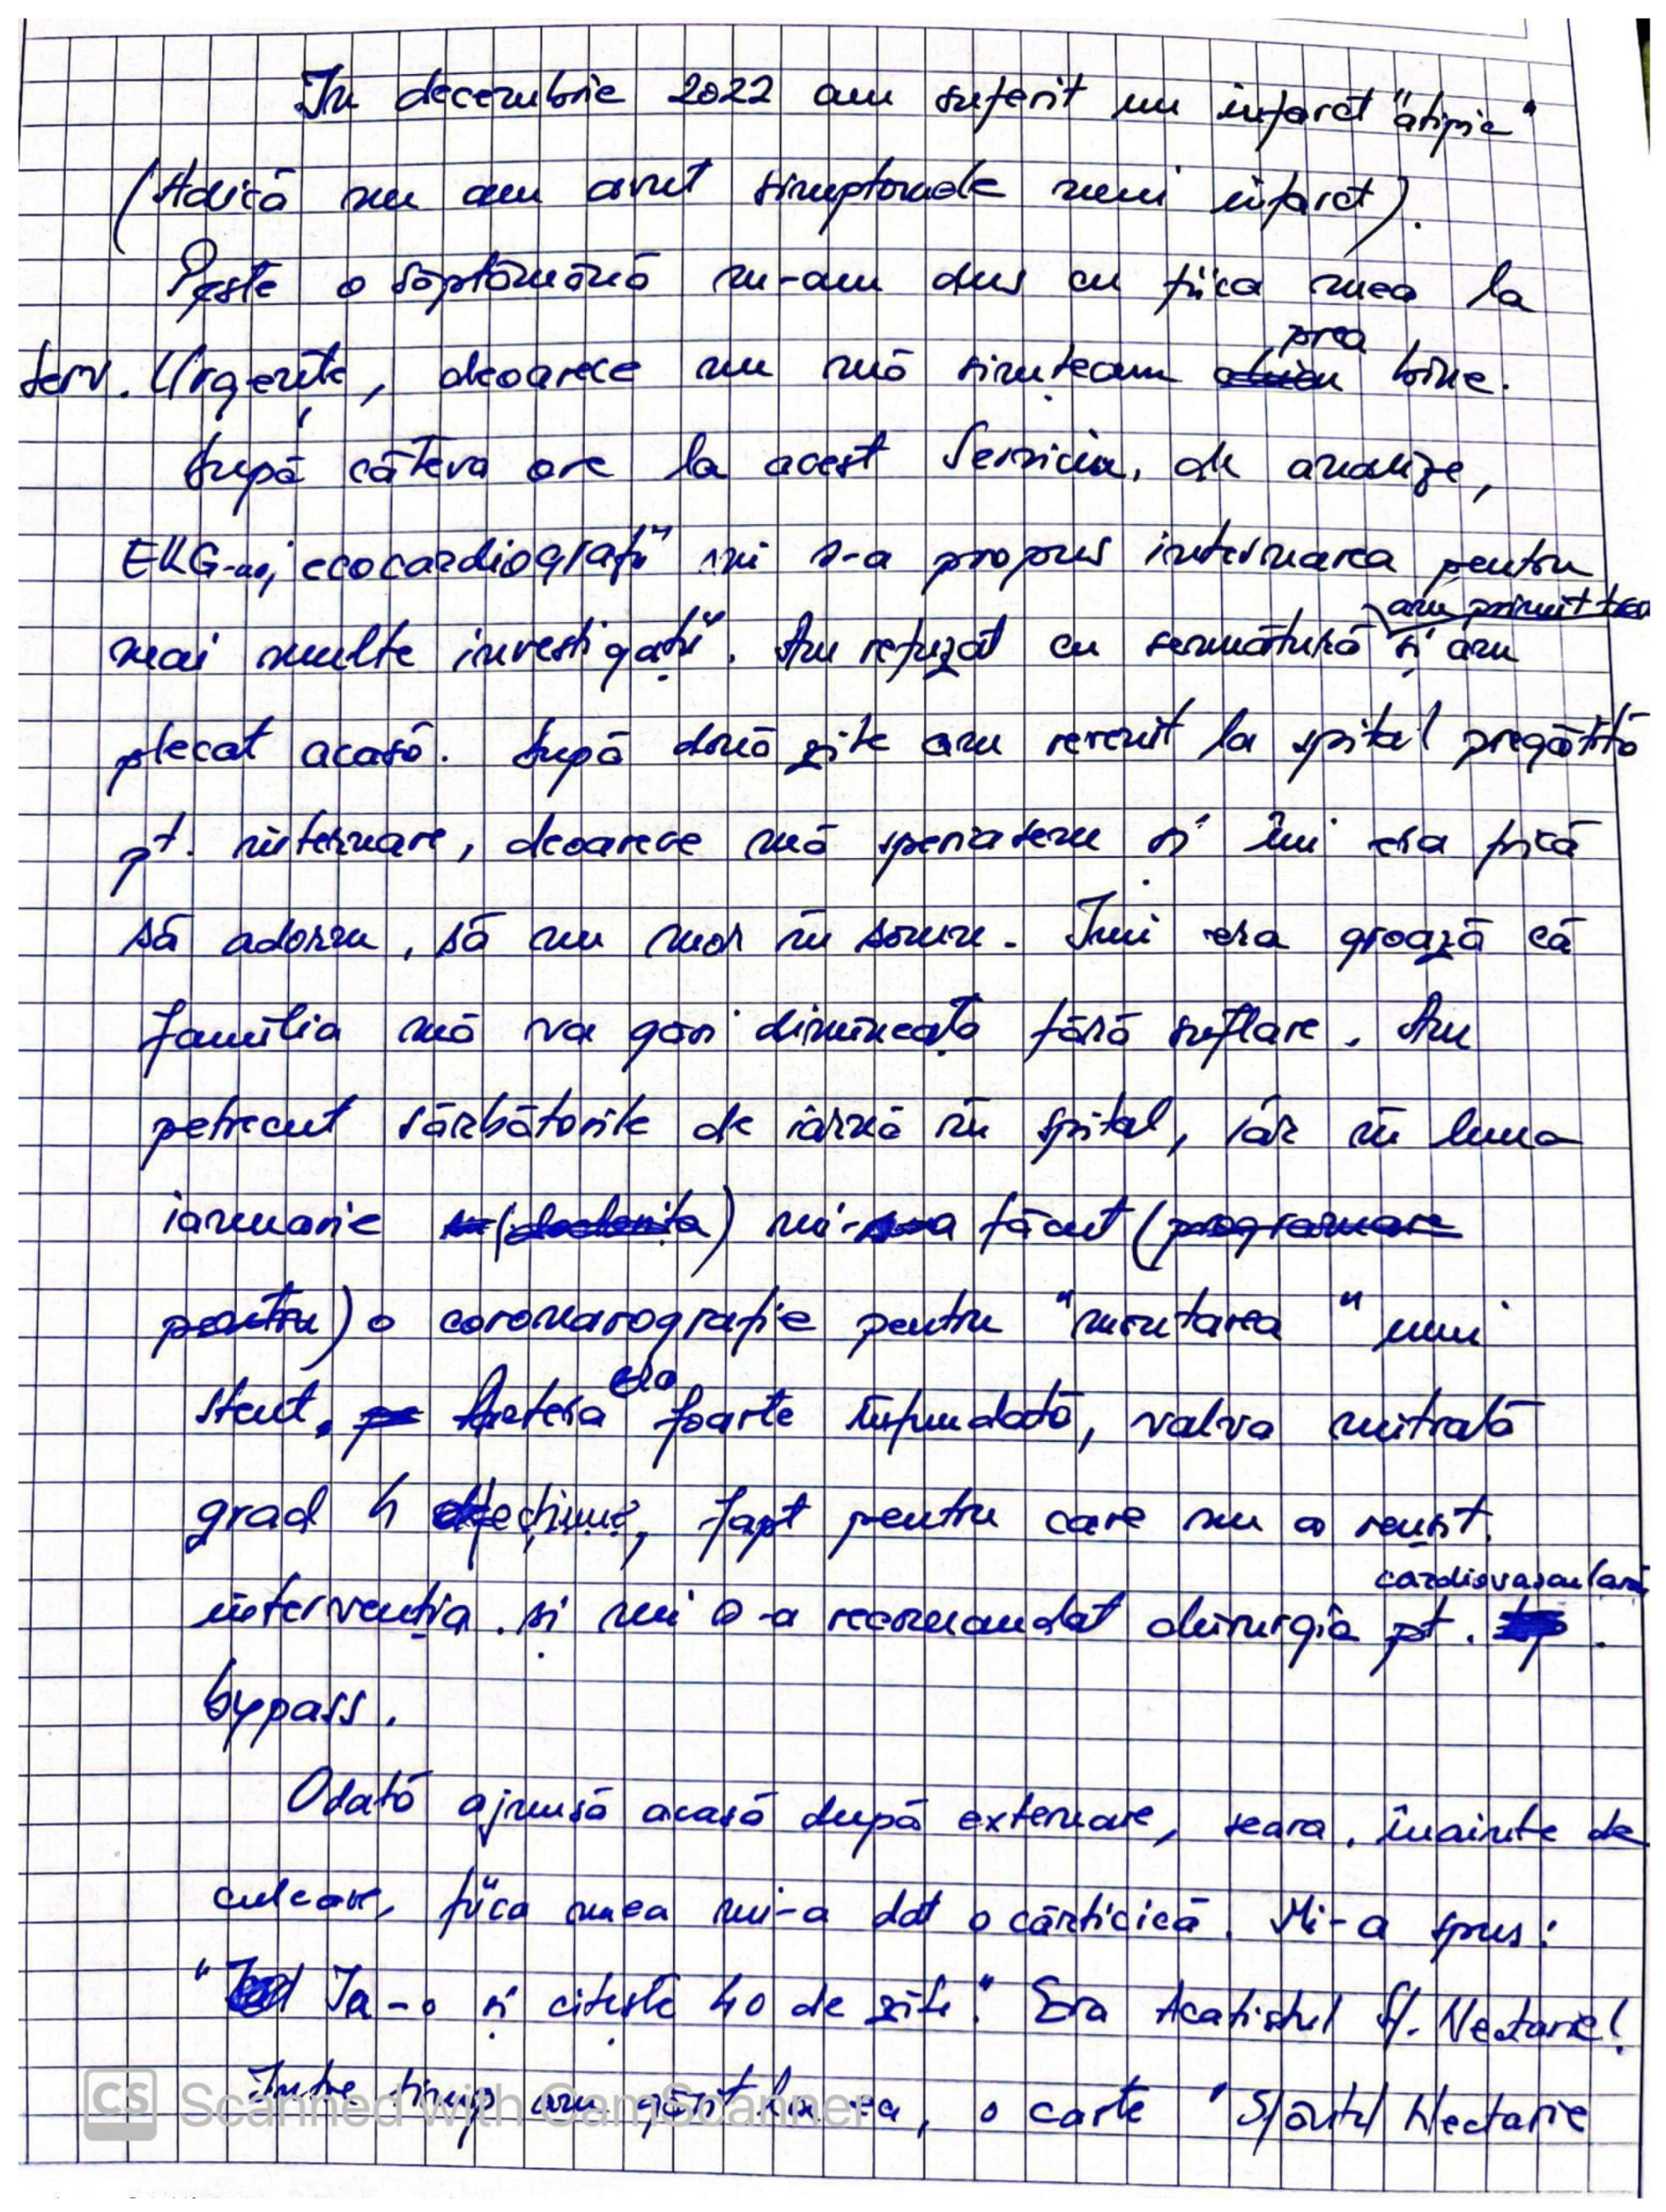 In decembrie 2022 am suferit un infarct "atipic"
(Adică nu am avut simptomele unui infarct).
Peste o săptămână m-am dus cu fiica mea la
Serv. Urgențe, deoarece nu mă simțeam prea bine.
După câteva ore la acest Serviciu, de analize,
EKG-uri, ecocardiografii mi s-a propus internarea pentru
am primit
mai multe investigații. Am refuzat cu semnătură și am
plecat acasă. După două zile am revenit la spital pregătită
pt. internare, deoarece mă speriasem și îmi era frică
să adorm, să nu mor în somn. Imi era groază că
familia mă va găsi dimineața fără suflare. Am
petrecut sărbătorile de iarnă în spital, iar în luna
ianuarie mi-a făcut (programare
pentru) o coronarografie pentru "montarea" unui
stent. Artera era foarte înfundată, valva mitrală
grad 4 defecțiune, fapt pentru care nu a reușit
intervenția și mi s-a recomandat chirurgia cardiovasculară pt.
bypass.
Odată ajunsă acasă după externare, seara, înainte de
culcare, fiica mea mi-a dat o cărticică. Mi-a spus:
"Ia-o și citește 40 de zile." Era Acatistul Sf. Nectarie!
Intre timp am găsit la ea, o carte "Sfântul Nectarie
CS Scanned with CamScanner